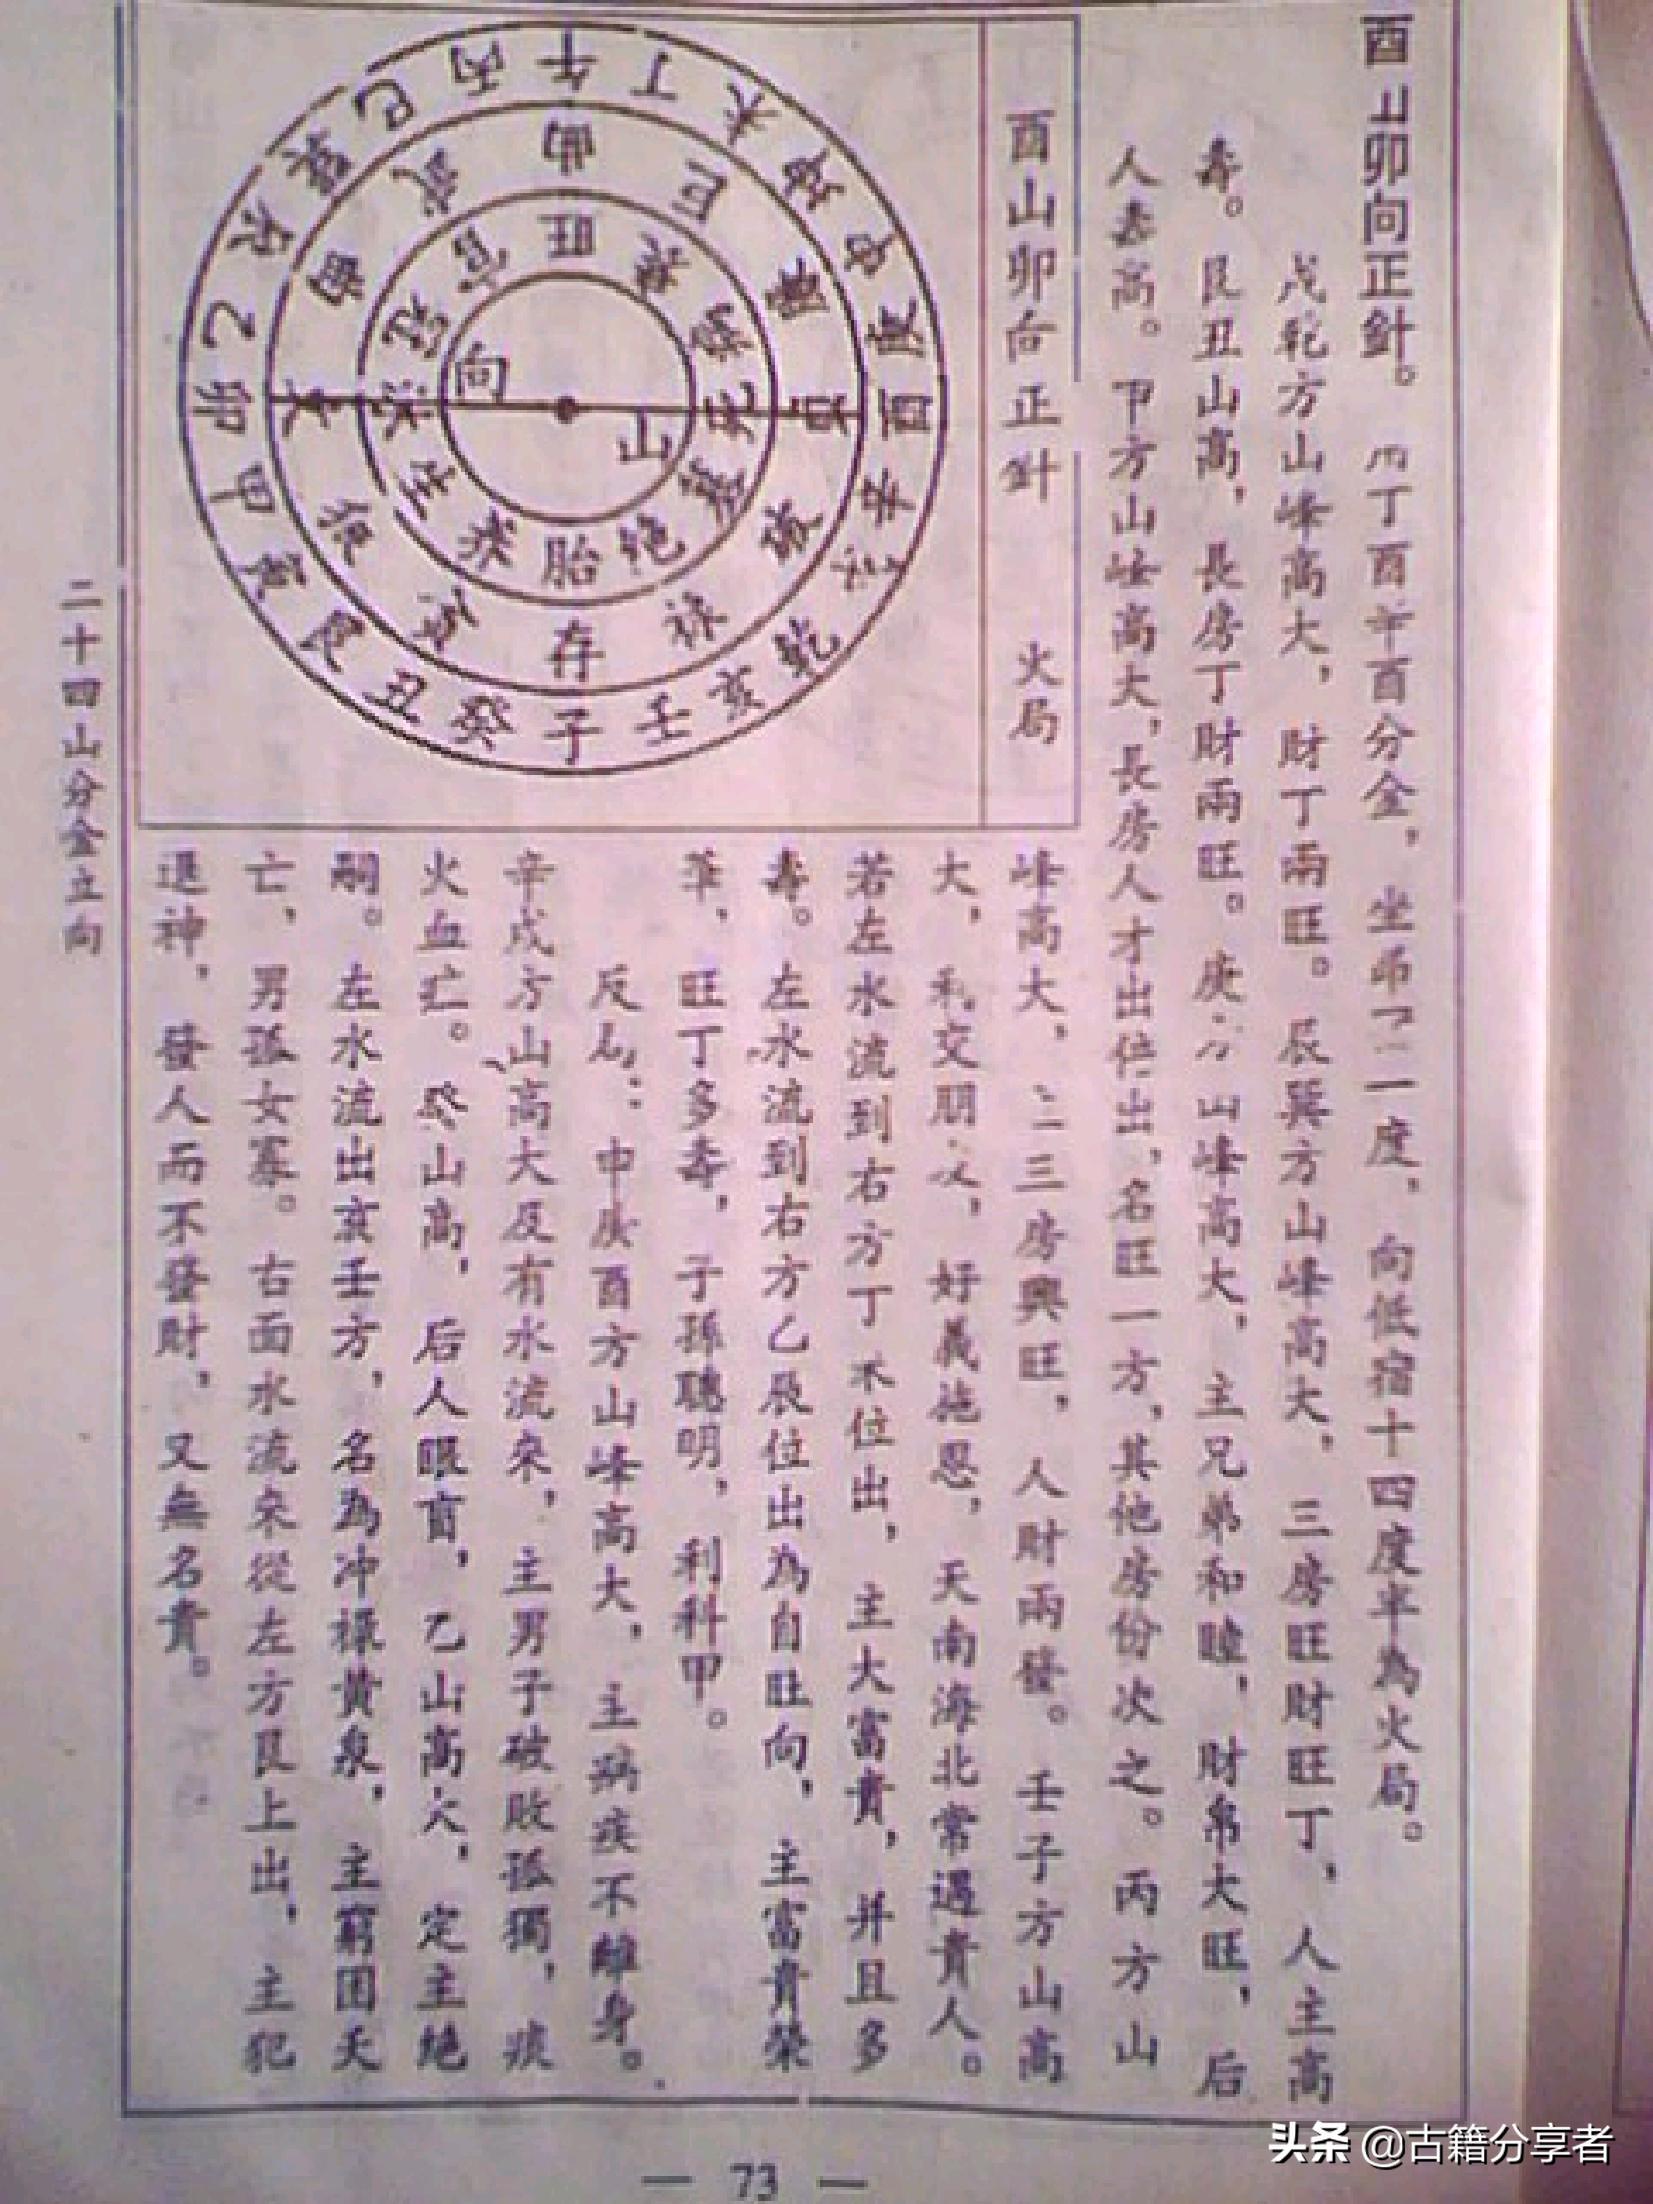 酉山卯向正針。丁酉辛酉分金，坐二度，向低宿十四度半為火局。
戌乾方山峰高大，財丁兩旺。辰巽方山峰高大，三房旺財旺丁，人主高
壽。艮丑山高，長房丁財兩旺。庚方山峰高大，主兄弟和睦，財帛大旺，后
人壽高。甲方山峰高大，長房人才出位出，名旺一方，其他房份次之。丙方山
酉山卯向正針 火局
峰高大，二三房興旺，人財兩發。壬子方山高
大，利交朋友，好義施恩，天南海北常遇貴人。
若左水流到右方丁未位出，主大富貴，并且多
壽。左水流到右方乙辰位出為自旺向，主富貴榮
華，旺丁多壽，子孫聰明，利科甲。
反局：申庚酉方山峰高大，主病疾不離身。
辛戌方山高大及有水流來，主男子破敗孤獨，痰
火血亡。癸山高，后人眼盲，乙山高大，定主絕
嗣。左水流出亥壬方，名為冲祿黃泉，主窮困夭
亡，男孤女寡。右面水流來從左方艮上出，主犯
退神，發人而不發財，又無名貴。
午丁未坤申庚酉辛戌乾亥壬子癸丑艮寅甲卯乙辰巽巳丙
存
旺
死墓絕胎養生
向
山
二十四山分金立向
— 73 —
头条 @古籍分享者